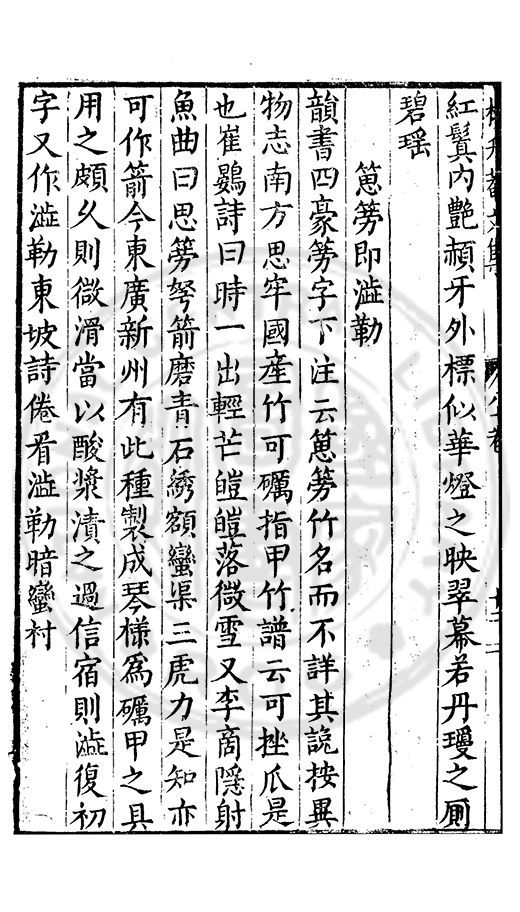 升菴文集 八卷
紅鬚内艷頳牙外標似華燈之映翠幕若丹瓊之厠
碧瑶
䓗䇭即澁勒
韻書四豪䇭字下注云䓗䇭竹名而不詳其說按異
物志南方思牢國産竹可礪指甲竹譜云可挫爪是
也崔鷃詩曰時一出輕芒皚皚落微雪又李商隱射
魚曲曰思䇭弩箭磨青石綉額蠻渠三虎力是知亦
可作箭今東廣新州有此種製成琴様爲礪甲之具
用之頗乆則微滑當以酸漿漬之過信宿則澁復初
字又作澁勒東坡詩倦看澁勒暗蠻村